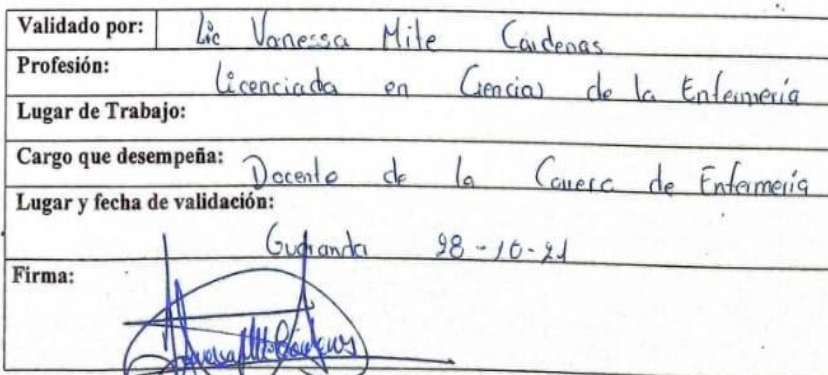 Validado por: Lic Vanessa Mite Cárdenas
Profesión: Licenciada en Ciencias de la Enfermería
Lugar de Trabajo:
Cargo que desempeña: Docente de la Carrera de Enfermería
Lugar y fecha de validación:
Guaranda 28-10-21
Firma: